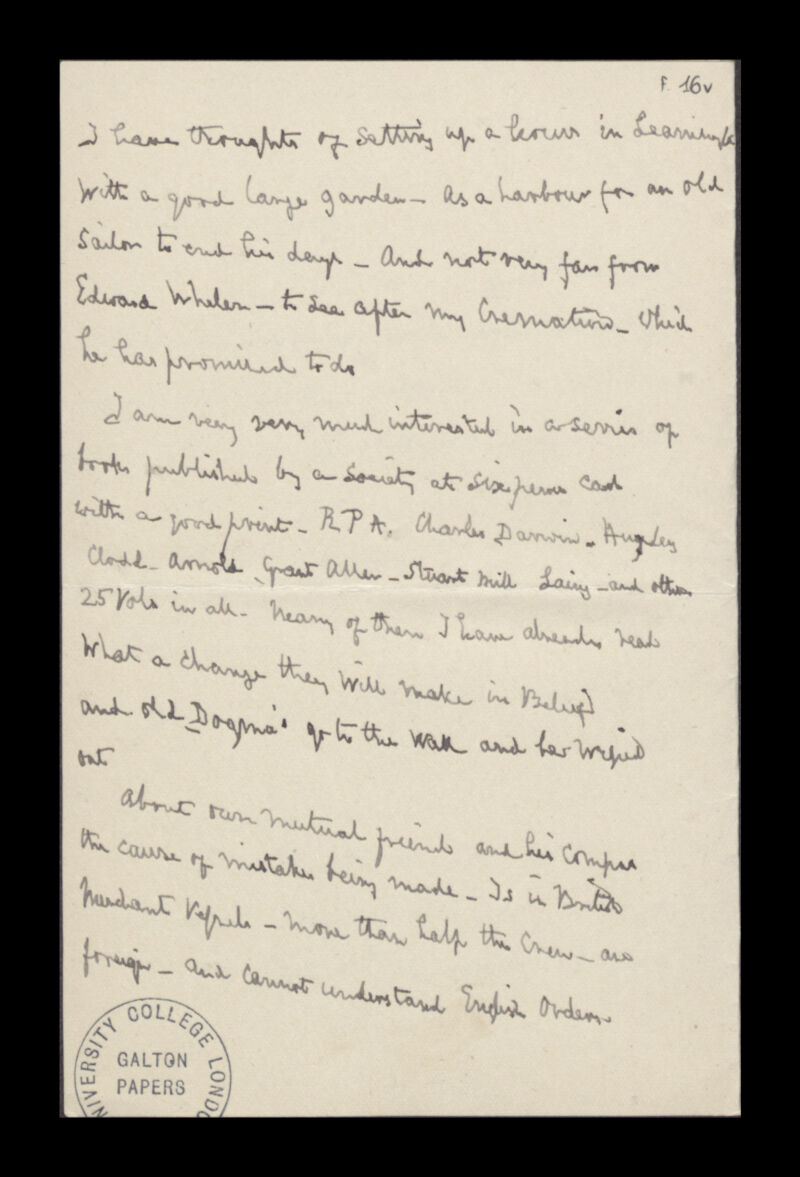 F. 16v
I have thoughts of setting up a house in Leamington
With a good large garden – as a harbour for an old
Sailor to end his days – And not very far from
Edward Wheler – to see after my Cremation – Which
he has promised to do
I am very very much interested in a series of
books published by a Society at Sixpence each
with a good print – R P A. Charles Darwin – Huxley
Clodd – Arnold Grant Allen – Stuart Mill Laing – and others
25 Vols in all – Many of them I have already read
What a change they will make in Belief
and old Dogma's go to the wall and be wiped
out
About our mutual friend and his Compass
the cause of mistakes being made – Is in British
Merchant Vessels – more than half the Crew – are
foreign – and cannot understand English Orders
UNIVERSITY COLLEGE LONDON
GALTON
PAPERS